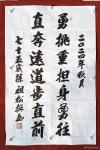 二〇二四年秋月
勇挑重担身勇往
直奔远道步直前
七十五岁孫祖